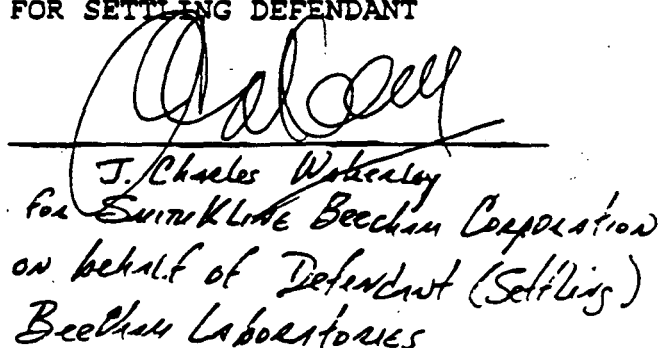 FOR SETTLING DEFENDANT
J. Charles Wakerley
for SmithKline Beecham Corporation
on behalf of Defendant (Settling)
Beecham Laboratories